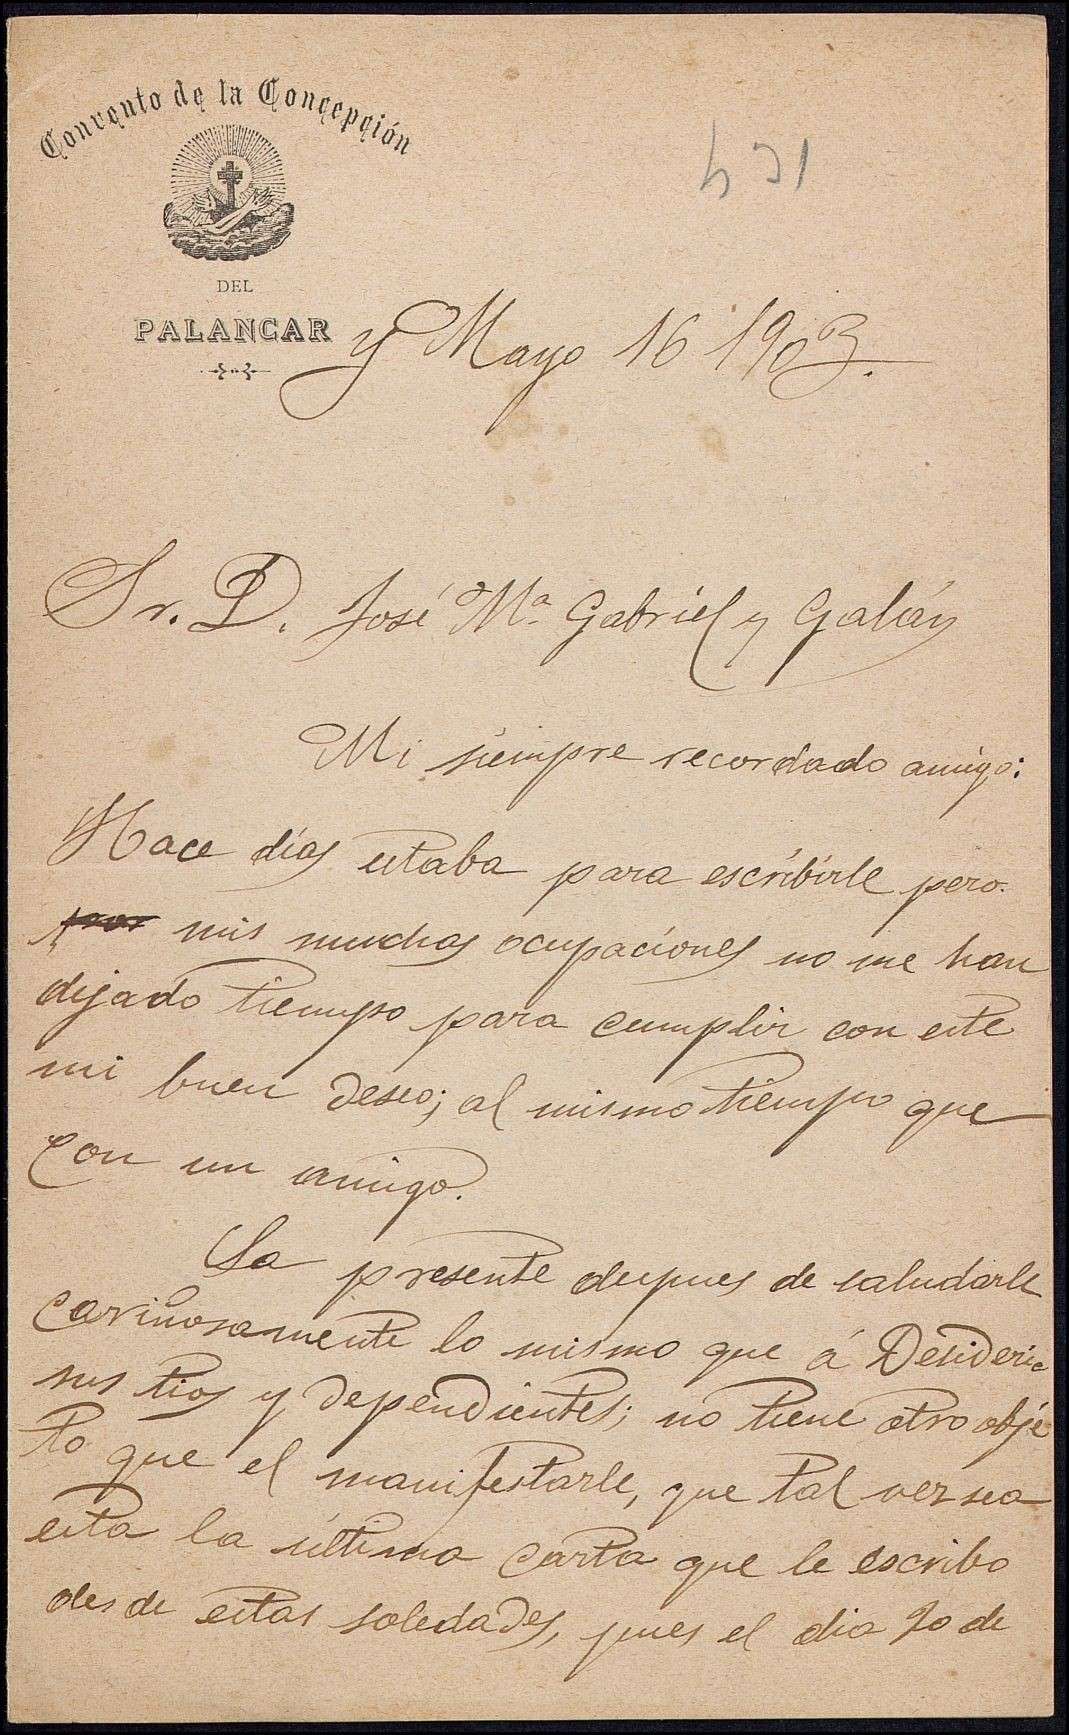 Convento de la Concepción
DEL
PALANCAR
y Mayo 16 1903.
Sr. D. José Mª Gabriel y Galán
Mi siempre recordado amigo:
Hace días estaba para escribirle pero
por mis muchas ocupaciones no me han
dejado tiempo para cumplir con este
mi buen deseo; al mismo tiempo que
con un amigo.
La presente despues de saludarle
cariñosamente lo mismo que á Desiderio
sus tios y dependientes; no tiene otro obje
to que el manifestarle, que tal vez sea
esta la última carta que le escribo
desde estas soledades, pues el dia 20 de